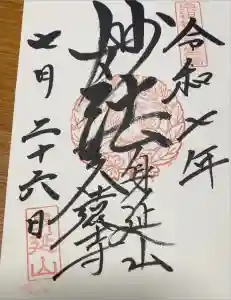 令和七年
身延山
妙法
久遠寺
七月二十六日
身延山